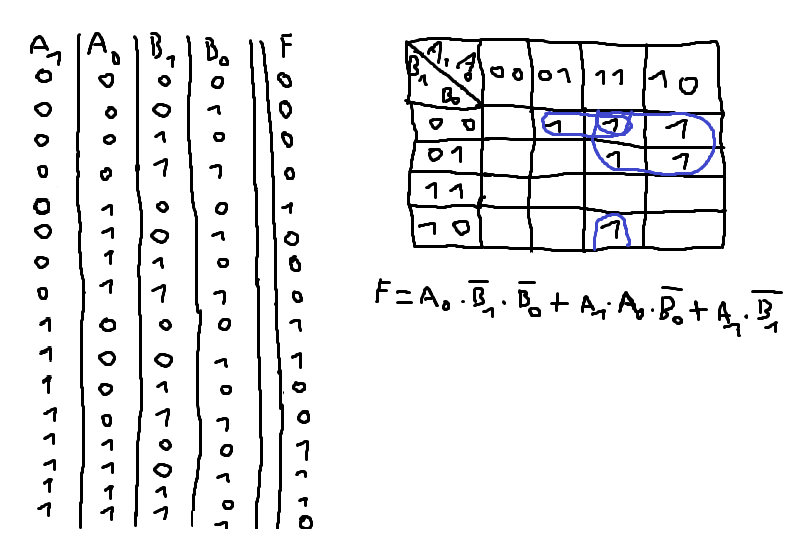 A₁ A₀ B₁ B₀ F
0 0 0 0 0
0 0 0 1 0
0 0 1 0 0
0 0 1 1 0
0 1 0 0 1
0 1 0 1 0
0 1 1 0 0
0 1 1 1 0
1 0 0 0 1
1 0 0 1 1
1 0 1 0 0
1 0 1 1 0
1 1 0 0 1
1 1 0 1 1
1 1 1 0 1
1 1 1 1 0
A₁ A₀ B₁ B₀ 00 01 11 10
00 1 1 1
01 1 1
11
10 1
F = A₀ · B̅₁ · B̅₀ + A₁ · A₀ · B̅₀ + A₁ · B̅₁